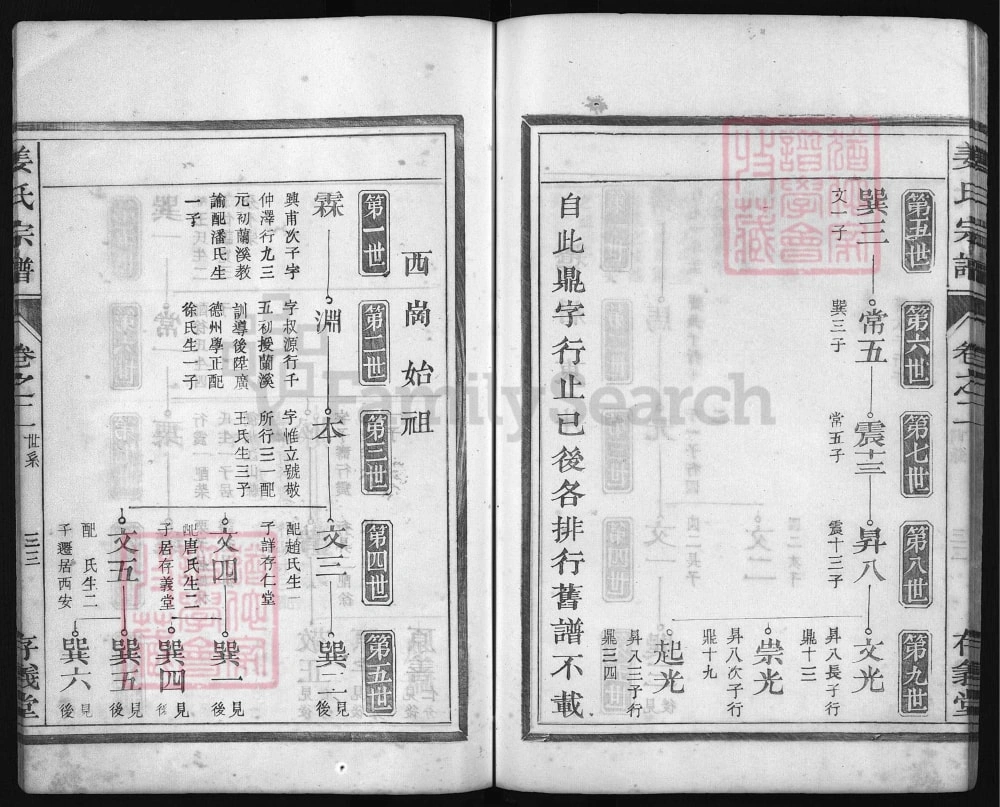 姜氏宗譜
卷之二
存義堂
第五世
第六世
第七世
第八世
第九世
巽三
文一子
常五
巽三子
震十三
常五子
昇八
震十三子
文光
昇八長子行
鼎十三
崇光
昇八次子行
鼎十九
起光
昇八三子行
鼎三四
自此鼎字行止已後各排行舊譜不載
西崗始祖
第一世
第二世
第三世
第四世
第五世
霖
興甫次子字
仲澤行九三
元初蘭溪教
諭配潘氏生
一子
淵
字叔源行千
五初授蘭溪
訓導後陞廣
德州學正配
徐氏生一子
本
字惟立號敬
所行三一配
王氏生三子
文三
配趙氏生一
子詳存仁堂
巽二
見後
文四
配唐氏生二
子居存義堂
巽一
見後
巽四
見後
文五
配 氏生二
子遷居西安
巽五
見後
巽六
見後
姜氏宗譜
卷之二
世系
三三
存義堂
FamilySearch